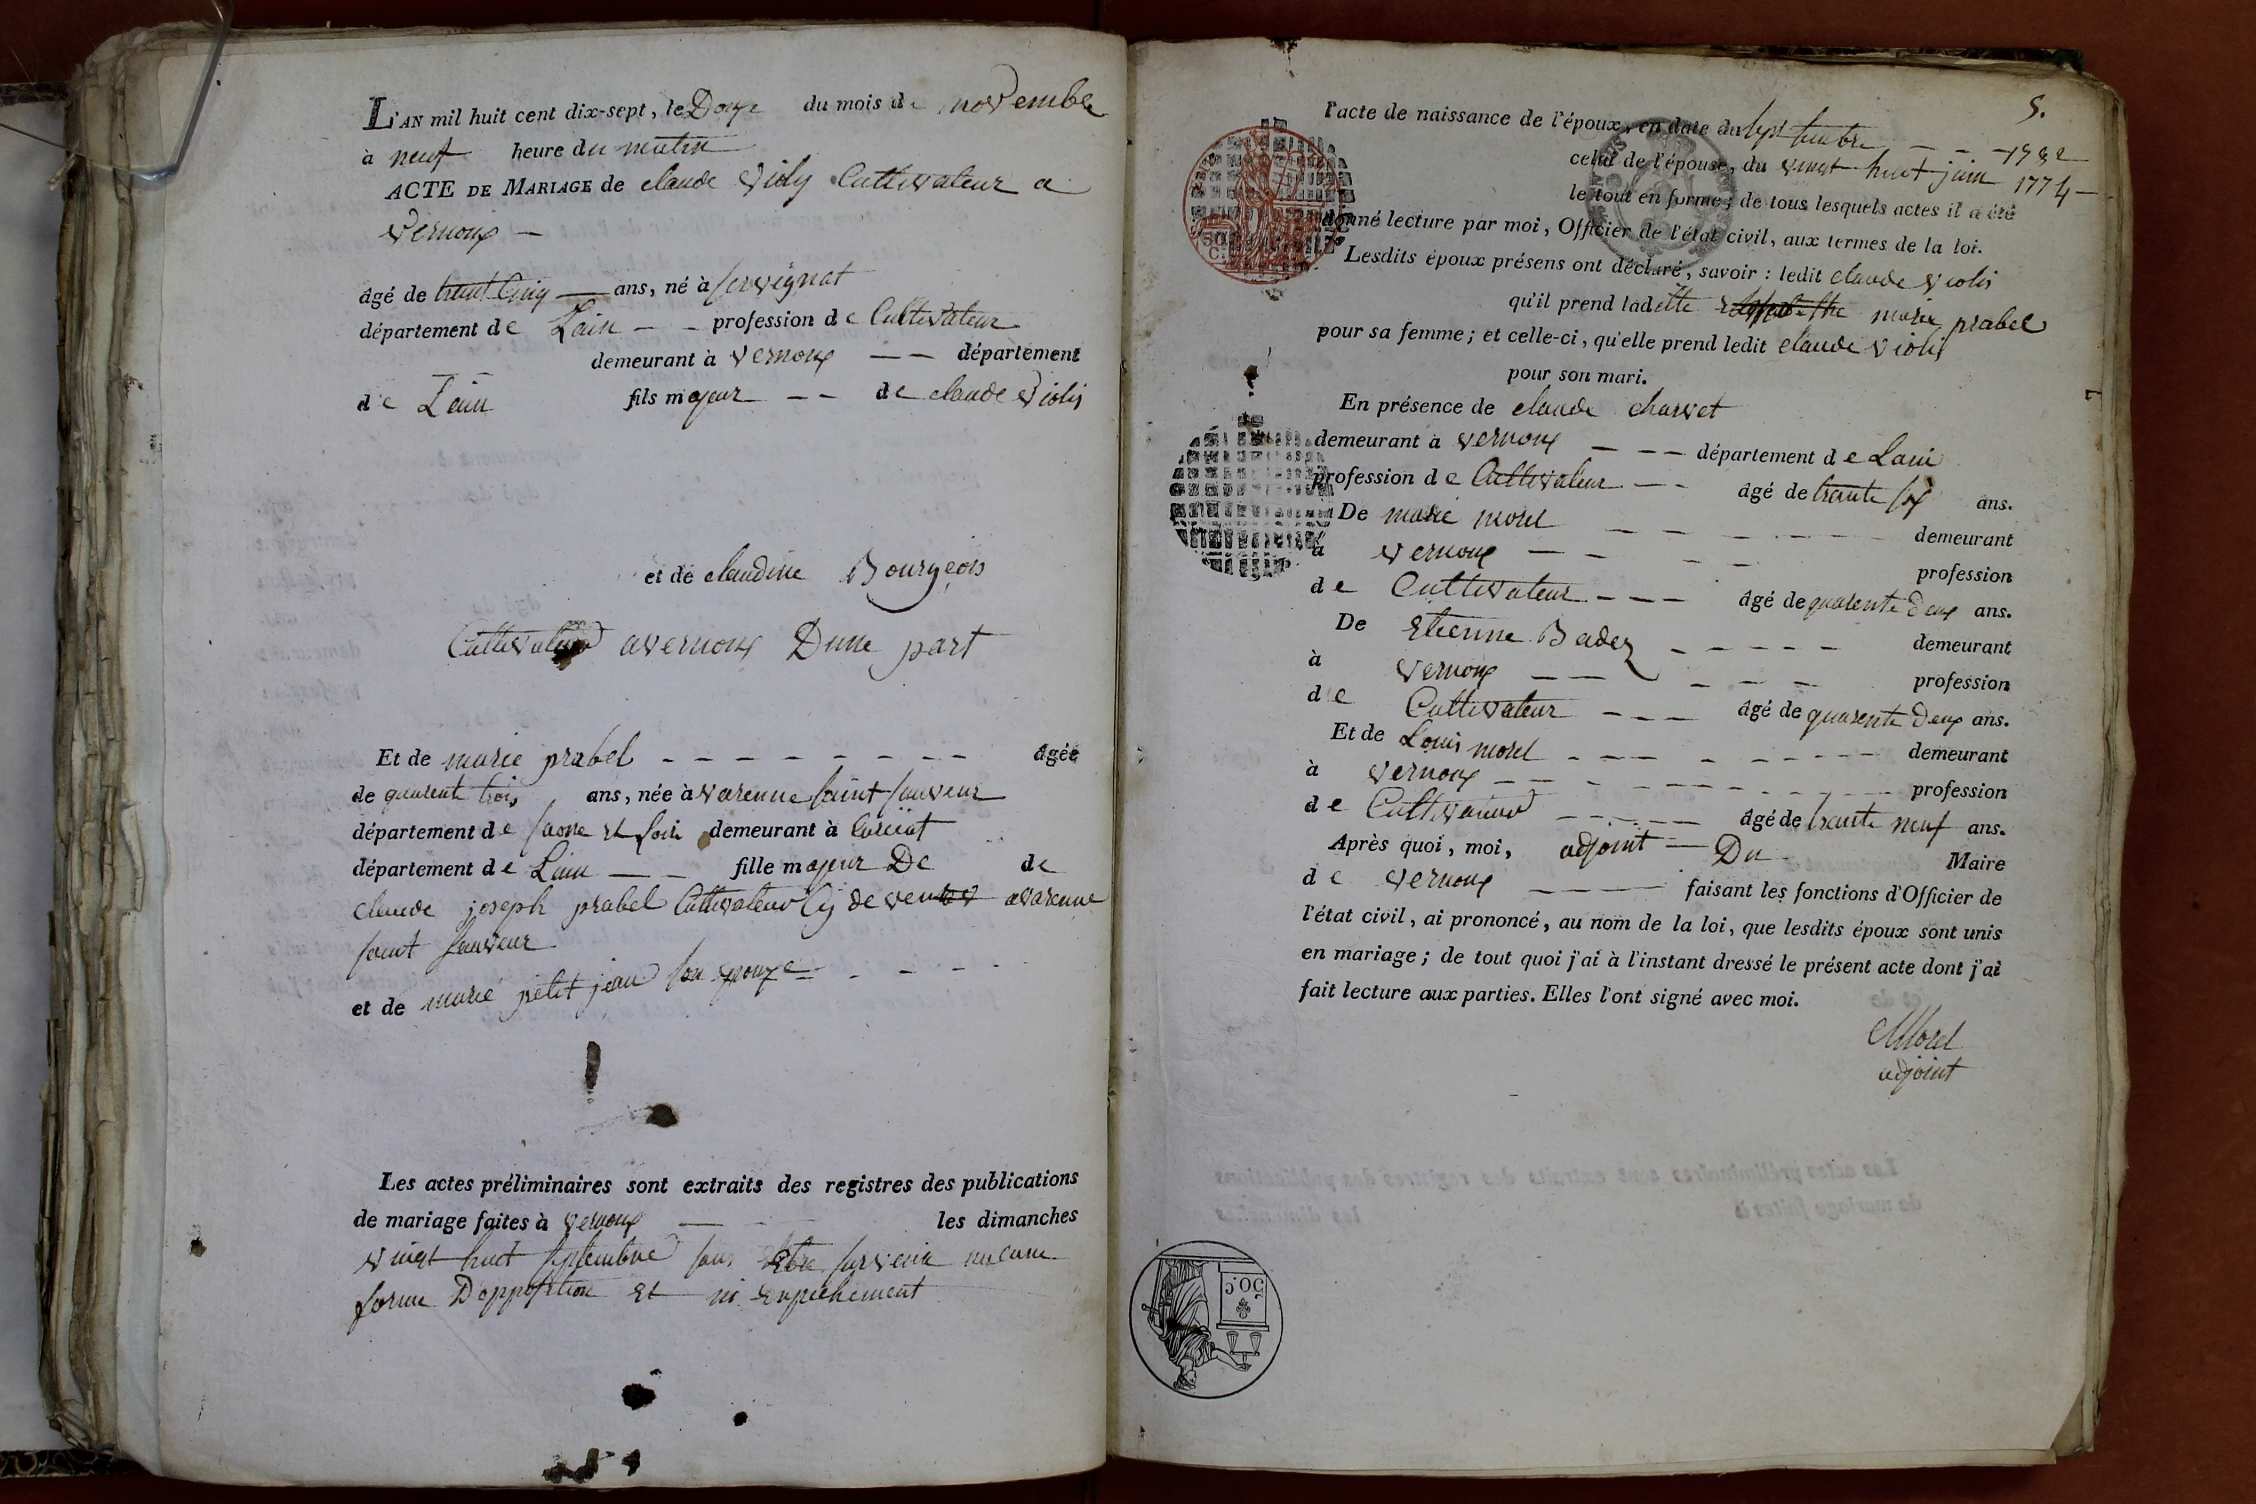 L'AN mil huit cent dix-sept, le Douze du mois de novembre
à neuf heure du matin
ACTE DE MARIAGE de claude Violy Cultivateur a
vernoux
âgé de trent Cinq ans, né à servignat
département de Lain profession de Cultivateur
demeurant à vernoux département
de Lain fils majeur de claude Violis
et de claudine Bourgeois
Cultivateur avernoux Dune part
Et de marie prabel âgée
de quarente trois ans, née à varenne saint sauveur
département de saone et loir demeurant à Curciat
département de Lain fille majeur De de
claude joseph prabel Cultivateur de avarenne
saint sauveur
et de marie petit jean son epouze
Les actes préliminaires sont extraits des registres des publications
de mariage faites à vernoux les dimanches
vingt huit septembre sans Etre survenu aucune
forme Dopposition Et ni Enpechement
5.
l'acte de naissance de l'époux, en date du 1782
celui de l'épouse, du vingt huit juin 1774
le tout en forme; de tous lesquels actes il a été
donné lecture par moi, Officier de l'état civil, aux termes de la loi.
Lesdits époux présens ont déclaré, savoir : ledit claude violis
qu'il prend ladette marie prabel
pour sa femme; et celle-ci, qu'elle prend ledit claude violis
pour son mari.
En présence de claude charvet
demeurant à vernoux département de Lain
profession de Cultivateur âgé de trente six ans.
De marie morel demeurant
à vernoux profession
de Cultivateur âgé de quarente deux ans.
De Etienne Badez demeurant
à vernoux profession
de Cultivateur âgé de quarente deux ans.
Et de Louis morel demeurant
à vernoux profession
de Cultivateur âgé de trente neuf ans.
Après quoi, moi, adjoint Du Maire
de vernoux faisant les fonctions d'Officier de
l'état civil, ai prononcé, au nom de la loi, que lesdits époux sont unis
en mariage; de tout quoi j'ai à l'instant dressé le présent acte dont j'ai
fait lecture aux parties. Elles l'ont signé avec moi.
Morel
adjoint
50 C.
50 C.